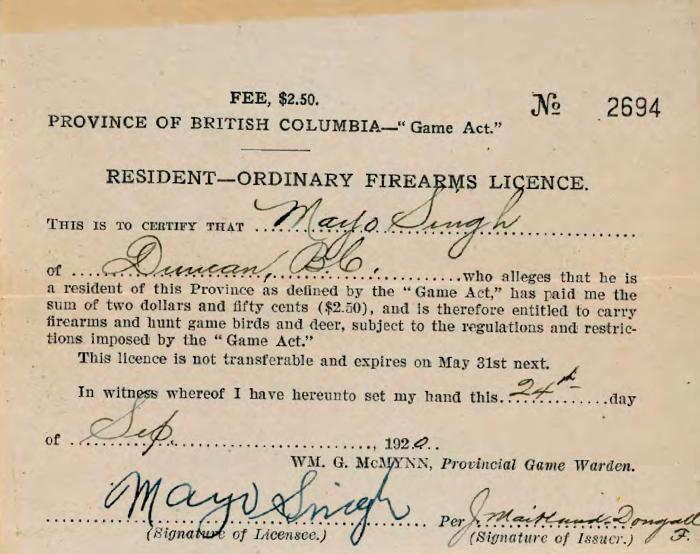 FEE, $2.50.
№ 2694
PROVINCE OF BRITISH COLUMBIA—"Game Act."
RESIDENT—ORDINARY FIREARMS LICENCE.
THIS IS TO CERTIFY THAT Mayo Singh
of Duncan, B.C. who alleges that he is
a resident of this Province as defined by the "Game Act," has paid me the
sum of two dollars and fifty cents ($2.50), and is therefore entitled to carry
firearms and hunt game birds and deer, subject to the regulations and restric-
tions imposed by the "Game Act."
This licence is not transferable and expires on May 31st next.
In witness whereof I have hereunto set my hand this 24th day
of Sep. , 1920.
WM. G. McMYNN, Provincial Game Warden.
Mayo Singh Per J. Maitland-Dougall
(Signature of Licensee.) (Signature of Issuer.)